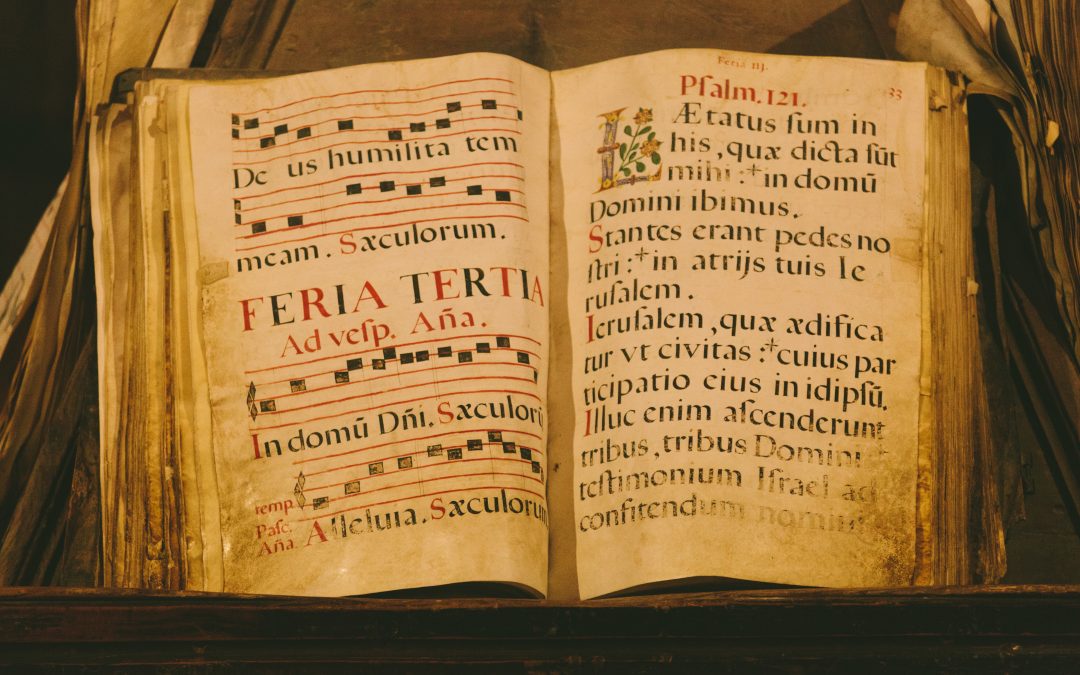 De us humilita tem
meam. Sæculorum.
FERIA TERTIA
Ad veſp. Aña.
In domū Dñi. Sæculorū
temp
Paſc.
Aña. Alleluia. Sæculorum
Feria iij.
Pſalm. 121. 33
LÆtatus ſum in
his, quæ dicta ſūt
mihi :⁺in domū
Domini ibimus.
Stantes erant pedes no
ſtri :⁺in atrijs tuis Ie
ruſalem.
Ieruſalem, quæ ædifica
tur vt civitas :⁺cuius par
ticipatio eius in idipſū.
Illuc enim aſcenderunt
tribus, tribus Domini
teſtimonium Iſrael ad
confitendum nomini